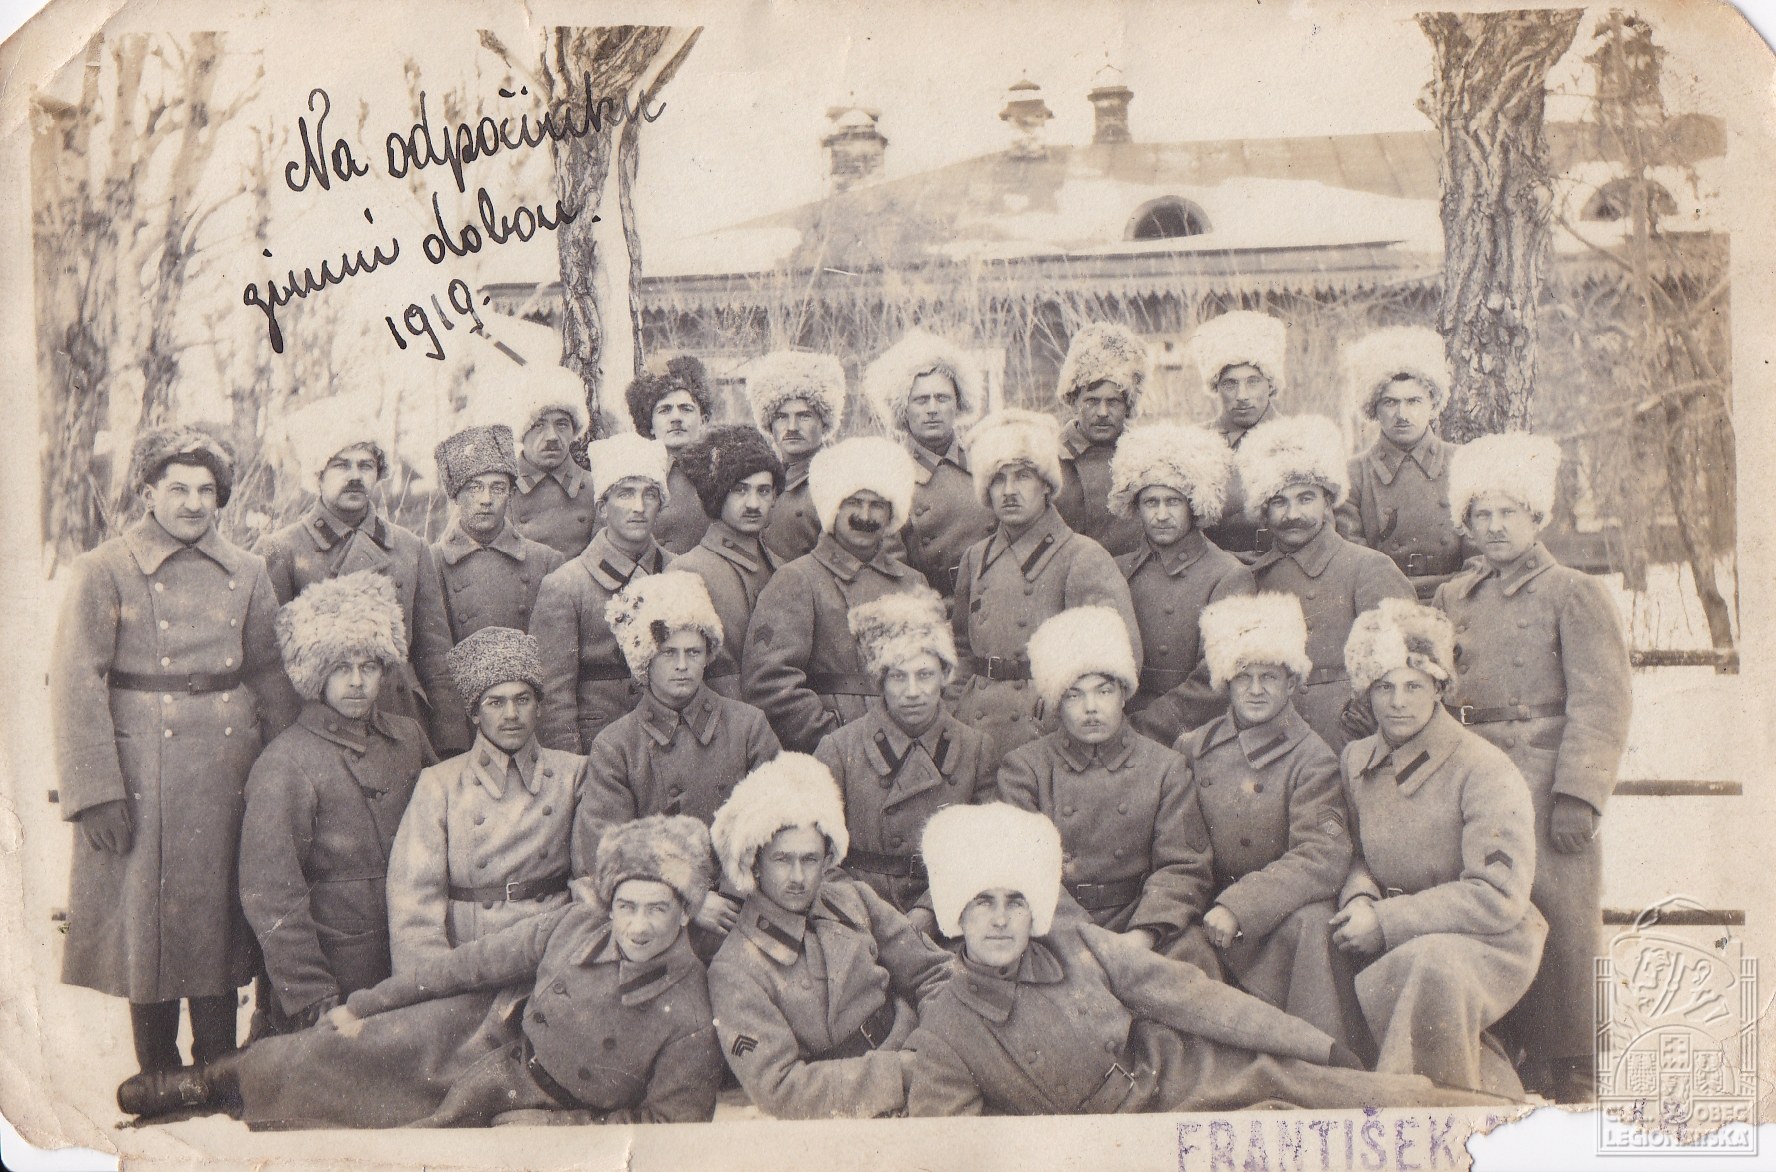 Na odpočinku
zimní dobou.
1919.
FRANTIŠEK
OBEC
LEGIONÁŘSKÁ